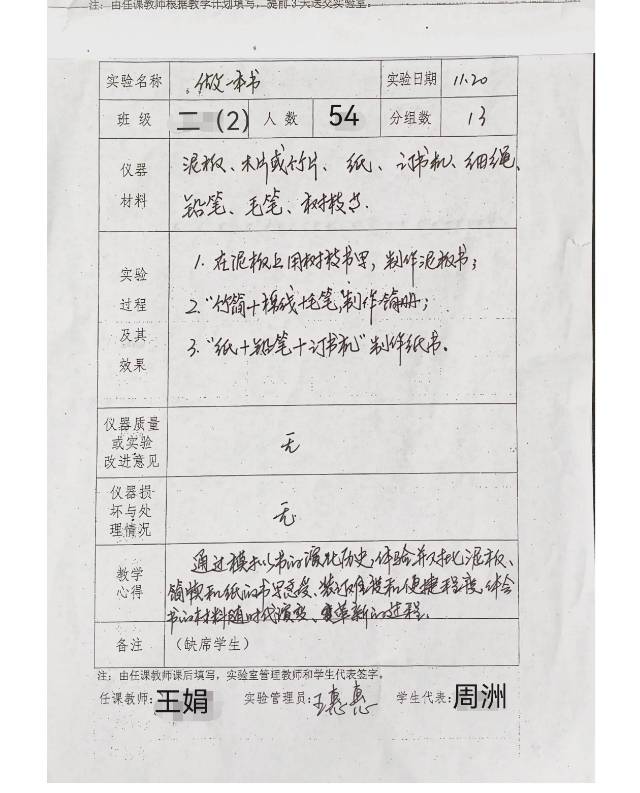 注：由任课教师根据教学计划填写，提前3天送交实验室。
实验名称 做一本书 实验日期 11.20
班 级 二 (2) 人 数 54 分组数 13
仪器
材料
泥板、木片或竹片、纸、订书机、细绳、
铅笔、毛笔、树枝等.
实验
过程
及其
效果
1. 在泥板上用树枝书写，制作泥板书；
2. "竹简+棉线+毛笔"制作简册；
3. "纸+铅笔+订书机"制作纸书.
仪器质量
或实验
改进意见
无
仪器损
坏与处
理情况
无
教学
心得
通过模拟书的演化历史，体验并对比泥板、
简牍和纸的书写感受、装订难度和便捷程度，体会
书的材料随时代演变、变革新的过程.
备注 （缺席学生）
注：由任课教师课后填写，实验室管理教师和学生代表签字。
任课教师：王娟 实验管理员：王惠惠 学生代表：周洲